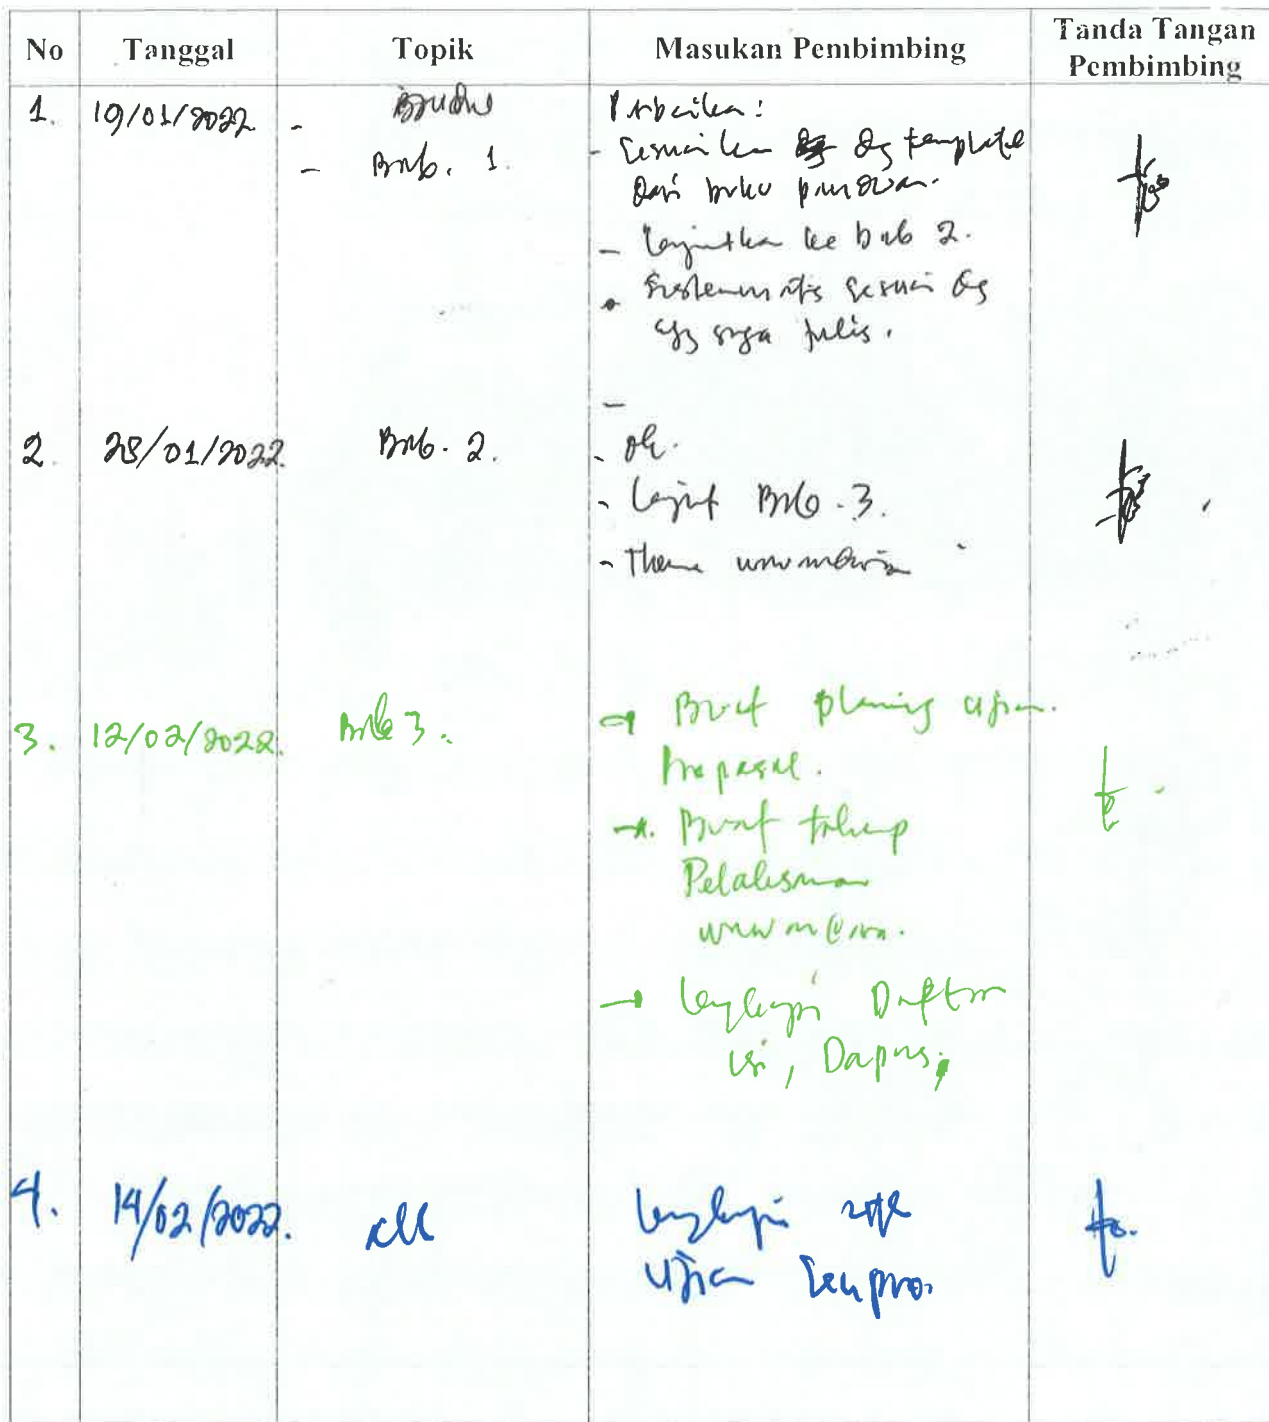 No Tanggal Topik Masukan Pembimbing Tanda Tangan Pembimbing
1. 19/01/2022 - Perbaikan:
- Bab. 1. - Sesuaikan dg template
dari buku panduan.
- Lanjutkan ke bab 2.
Sistematis sesuai dg
saya tulis.
-
2. 28/01/2022. Bab. 2. - ok.
- Lanjut Bab. 3.
- wawancara
3. 12/02/2022. Bab 3. → Buat planing ujian
Proposal.
→ Buat tahap
Pelaksanaan
wawancara.
→ Lengkapi Daftar
isi, Dapus,
4. 14/02/2022. all Lengkapi
ujian Sempro.